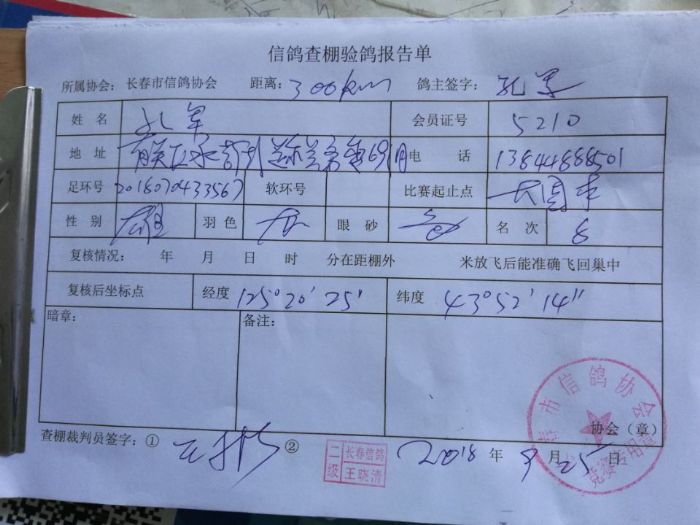 信鸽查棚验鸽报告单
所属协会：长春市信鸽协会 距离：300km 鸽主签字：孔军
姓名 孔军 会员证号 5210
地址 电话 13844888501
足环号 2018070433567 软环号 比赛起止点
性别 雄 羽色 眼砂 名次 8
复核情况： 年 月 日 时 分在距棚外 米放飞后能准确飞回巢中
复核后坐标点 经度 125°20'25' 纬度 43°52'14"
暗章： 备注：
市信鸽协会
协会（章）
查棚裁判员签字：① ② 二级 长春信鸽 王晓清 2018年9月25日